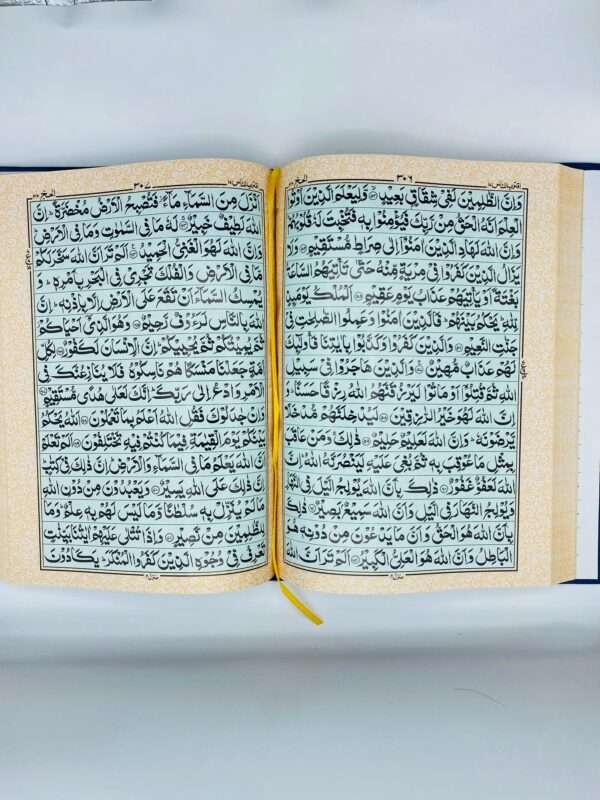 اقترب للناس ١٧ ٣٠٦ الحج ٢٢
وَاِنَّ الظّٰلِمِيْنَ لَفِىْ شِقَاقٍۢ بَعِيْدٍ ۙ۝۵۳ وَّلِيَعْلَمَ الَّذِيْنَ اُوْتُوا
الْعِلْمَ اَنَّهُ الْحَقُّ مِنْ رَّبِّكَ فَيُؤْمِنُوْا بِهٖ فَتُخْبِتَ لَهٗ قُلُوْبُهُمْ ؕ
وَاِنَّ اللّٰهَ لَهَادِ الَّذِيْنَ اٰمَنُوْۤا اِلٰى صِرَاطٍ مُّسْتَقِيْمٍ ۝۵۴ وَلَا
يَزَالُ الَّذِيْنَ كَفَرُوْا فِىْ مِرْيَةٍ مِّنْهُ حَتّٰى تَاْتِيَهُمُ السَّاعَةُ
بَغْتَةً اَوْ يَاْتِيَهُمْ عَذَابُ يَوْمٍ عَقِيْمٍ ۝۵۵ اَلْمُلْكُ يَوْمَئِذٍ
لِّلّٰهِ ؕ يَحْكُمُ بَيْنَهُمْ ؕ فَالَّذِيْنَ اٰمَنُوْا وَعَمِلُوا الصّٰلِحٰتِ فِىْ
جَنّٰتِ النَّعِيْمِ ۝۵۶ وَالَّذِيْنَ كَفَرُوْا وَكَذَّبُوْا بِاٰيٰتِنَا فَاُولٰٓئِكَ
لَهُمْ عَذَابٌ مُّهِيْنٌ ۝۵۷ وَالَّذِيْنَ هَاجَرُوْا فِىْ سَبِيْلِ
اللّٰهِ ثُمَّ قُتِلُوْۤا اَوْ مَاتُوْا لَيَرْزُقَنَّهُمُ اللّٰهُ رِزْقًا حَسَنًا ؕ وَ
اِنَّ اللّٰهَ لَهُوَ خَيْرُ الرّٰزِقِيْنَ ۝۵۸ لَيُدْخِلَنَّهُمْ مُّدْخَلًا
يَّرْضَوْنَهٗ ؕ وَاِنَّ اللّٰهَ لَعَلِيْمٌ حَلِيْمٌ ۝۵۹ ذٰلِكَ ۚ وَمَنْ عَاقَبَ
بِمِثْلِ مَا عُوْقِبَ بِهٖ ثُمَّ بُغِىَ عَلَيْهِ لَيَنْصُرَنَّهُ اللّٰهُ ؕ اِنَّ
اللّٰهَ لَعَفُوٌّ غَفُوْرٌ ۝۶۰ ذٰلِكَ بِاَنَّ اللّٰهَ يُوْلِجُ الَّيْلَ فِى النَّهَارِ
وَيُوْلِجُ النَّهَارَ فِى الَّيْلِ وَاَنَّ اللّٰهَ سَمِيْعٌۢ بَصِيْرٌ ۝۶۱ ذٰلِكَ
بِاَنَّ اللّٰهَ هُوَ الْحَقُّ وَاَنَّ مَا يَدْعُوْنَ مِنْ دُوْنِهٖ هُوَ
الْبَاطِلُ وَاَنَّ اللّٰهَ هُوَ الْعَلِىُّ الْكَبِيْرُ ۝۶۲ اَلَمْ تَرَ اَنَّ اللّٰهَ
منزل ٤
اقترب للناس ١٧ ٣٠٧ الحج ٢٢
اَنْزَلَ مِنَ السَّمَآءِ مَآءً ؗ فَتُصْبِحُ الْاَرْضُ مُخْضَرَّةً ؕ اِنَّ
اللّٰهَ لَطِيْفٌ خَبِيْرٌ ۝۶۳ لَهٗ مَا فِى السَّمٰوٰتِ وَمَا فِى الْاَرْضِ ؕ
وَاِنَّ اللّٰهَ لَهُوَ الْغَنِىُّ الْحَمِيْدُ ۝۶۴ اَلَمْ تَرَ اَنَّ اللّٰهَ سَخَّرَ لَكُمْ
مَّا فِى الْاَرْضِ وَالْفُلْكَ تَجْرِىْ فِى الْبَحْرِ بِاَمْرِهٖ ؕ وَ
يُمْسِكُ السَّمَآءَ اَنْ تَقَعَ عَلَى الْاَرْضِ اِلَّا بِاِذْنِهٖ ؕ اِنَّ
اللّٰهَ بِالنَّاسِ لَرَءُوْفٌ رَّحِيْمٌ ۝۶۵ وَهُوَ الَّذِىْۤ اَحْيَاكُمْ ؗ
ثُمَّ يُمِيْتُكُمْ ثُمَّ يُحْيِيْكُمْ ؕ اِنَّ الْاِنْسَانَ لَكَفُوْرٌ ۝۶۶ لِكُلِّ
اُمَّةٍ جَعَلْنَا مَنْسَكًا هُمْ نَاسِكُوْهُ فَلَا يُنَازِعُنَّكَ فِى
الْاَمْرِ وَادْعُ اِلٰى رَبِّكَ ؕ اِنَّكَ لَعَلٰى هُدًى مُّسْتَقِيْمٍ ۝۶۷
وَاِنْ جٰدَلُوْكَ فَقُلِ اللّٰهُ اَعْلَمُ بِمَا تَعْمَلُوْنَ ۝۶۸ اَللّٰهُ يَحْكُمُ
بَيْنَكُمْ يَوْمَ الْقِيٰمَةِ فِيْمَا كُنْتُمْ فِيْهِ تَخْتَلِفُوْنَ ۝۶۹ اَلَمْ تَعْلَمْ
اَنَّ اللّٰهَ يَعْلَمُ مَا فِى السَّمَآءِ وَالْاَرْضِ ؕ اِنَّ ذٰلِكَ فِىْ كِتٰبٍ ؕ
اِنَّ ذٰلِكَ عَلَى اللّٰهِ يَسِيْرٌ ۝۷۰ وَيَعْبُدُوْنَ مِنْ دُوْنِ اللّٰهِ
مَا لَمْ يُنَزِّلْ بِهٖ سُلْطٰنًا وَّمَا لَيْسَ لَهُمْ بِهٖ عِلْمٌ ؕ وَمَا
لِلظّٰلِمِيْنَ مِنْ نَّصِيْرٍ ۝۷۱ وَاِذَا تُتْلٰى عَلَيْهِمْ اٰيٰتُنَا بَيِّنٰتٍ
تَعْرِفُ فِىْ وُجُوْهِ الَّذِيْنَ كَفَرُوا الْمُنْكَرَ ؕ يَكَادُوْنَ
منزل ٤